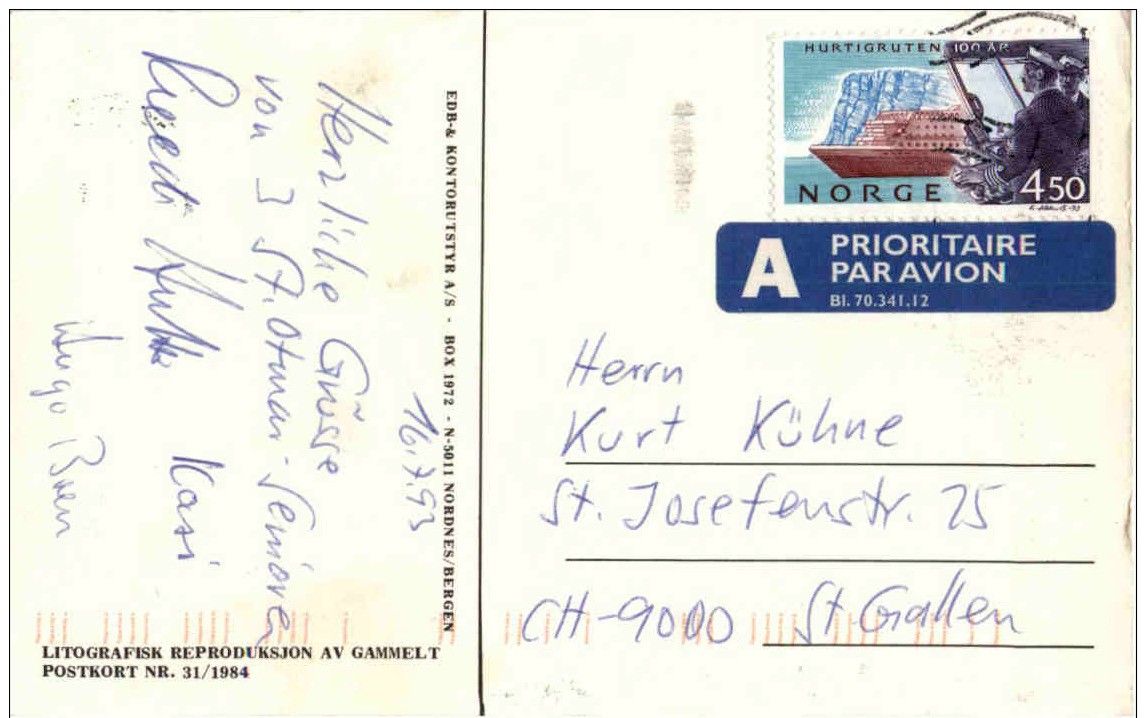 16.7.93
Herzliche Grüsse
von 3 St. Otmar-Senioren
Kasi
Hugo
EDB-& KONTORUTSTYR A/S - BOX 1972 - N-5011 NORDNES/BERGEN
LITOGRAFISK REPRODUKSJON AV GAMMELT
POSTKORT NR. 31/1984
HURTIGRUTEN 100 ÅR
NORGE 450
A PRIORITAIRE
PAR AVION
Bl. 70.341.12
Herrn
Kurt Kühne
St. Josefenstr. 25
CH-9000 St. Gallen